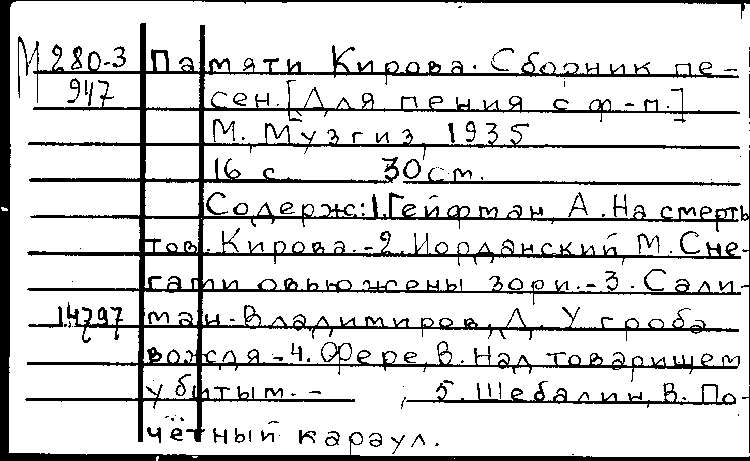 М 280-3 Памяти Кирова. Сборник пе-
947 сен. [Для пения с ф-п.]
М., Музгиз, 1935
16 с. 30 см.
Содерж: 1. Гейфман, А. На смерть
тов. Кирова. - 2. Иорданский, М. Сне-
гами овьюжены зори. - 3. Сали-
14797 ман-Владимиров, Д. У гроба
вождя - 4. Фере, В. Над товарищем
убитым. - , 5. Шебалин, В. По-
чётный караул.